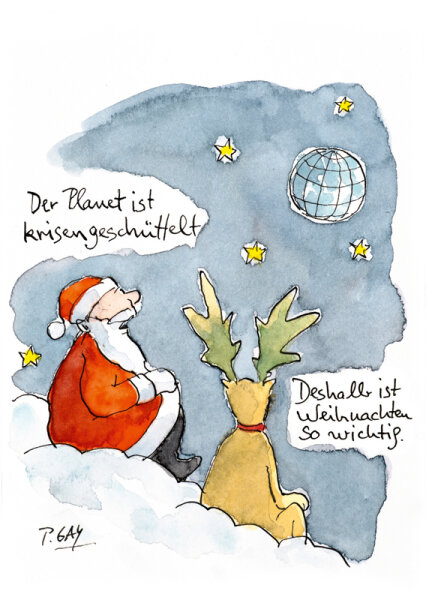 Der Planet ist
krisengeschüttelt
Deshalb ist
Weihnachten
so wichtig.
P. GAY